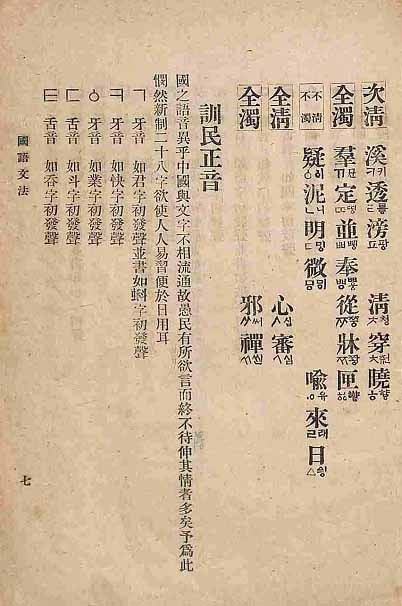 次淸 溪키ㅋ 透ㅌ 滂팡ㅍ 淸청ㅊ 穿ㅊ 曉향ㅎ
全濁 羣ㄲ 定ㄸ 並ㅃ 奉ㅹ 從ㅉ 牀ㅉ 匣ㆅ
不淸不濁 疑이ㆁ 泥니ㄴ 明밍ㅁ 微ㅱ 喩유ㅇ 來래ㄹ 日ㅿ
全淸 心신ㅅ 審심ㅅ
全濁 邪써ㅆ 禪ㅆ
訓民正音
國之語音異乎中國與文字不相流通故愚民有所欲言而終不待伸其情者多矣予爲此
憫然新制二十八字欲使人人易習便於日用耳
ㄱ 牙音 如君字初發聲並書如蚪字初發聲
ㅋ 牙音 如快字初發聲
ㆁ 牙音 如業字初發聲
ㄷ 舌音 如斗字初發聲
ㅌ 舌音 如呑字初發聲
國語文法
七